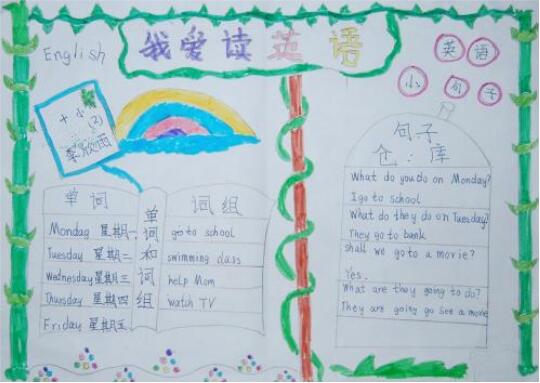 我爱读英语
English
英语
小句子
十小
(2)
李欣雨
句子
仓:库
What do you do on Monday?
I go to school
What do they do on Tuesday?
They go to bank
shall we go to a movie?
Yes.
What are they going to do?
They are going go see a movie
单词
单词和词组
词组
Monday 星期一
Tuesday 星期二
Wednesday 星期三
Thursday 星期四
Friday 星期五
go to school
swimming class
help Mom
watch TV